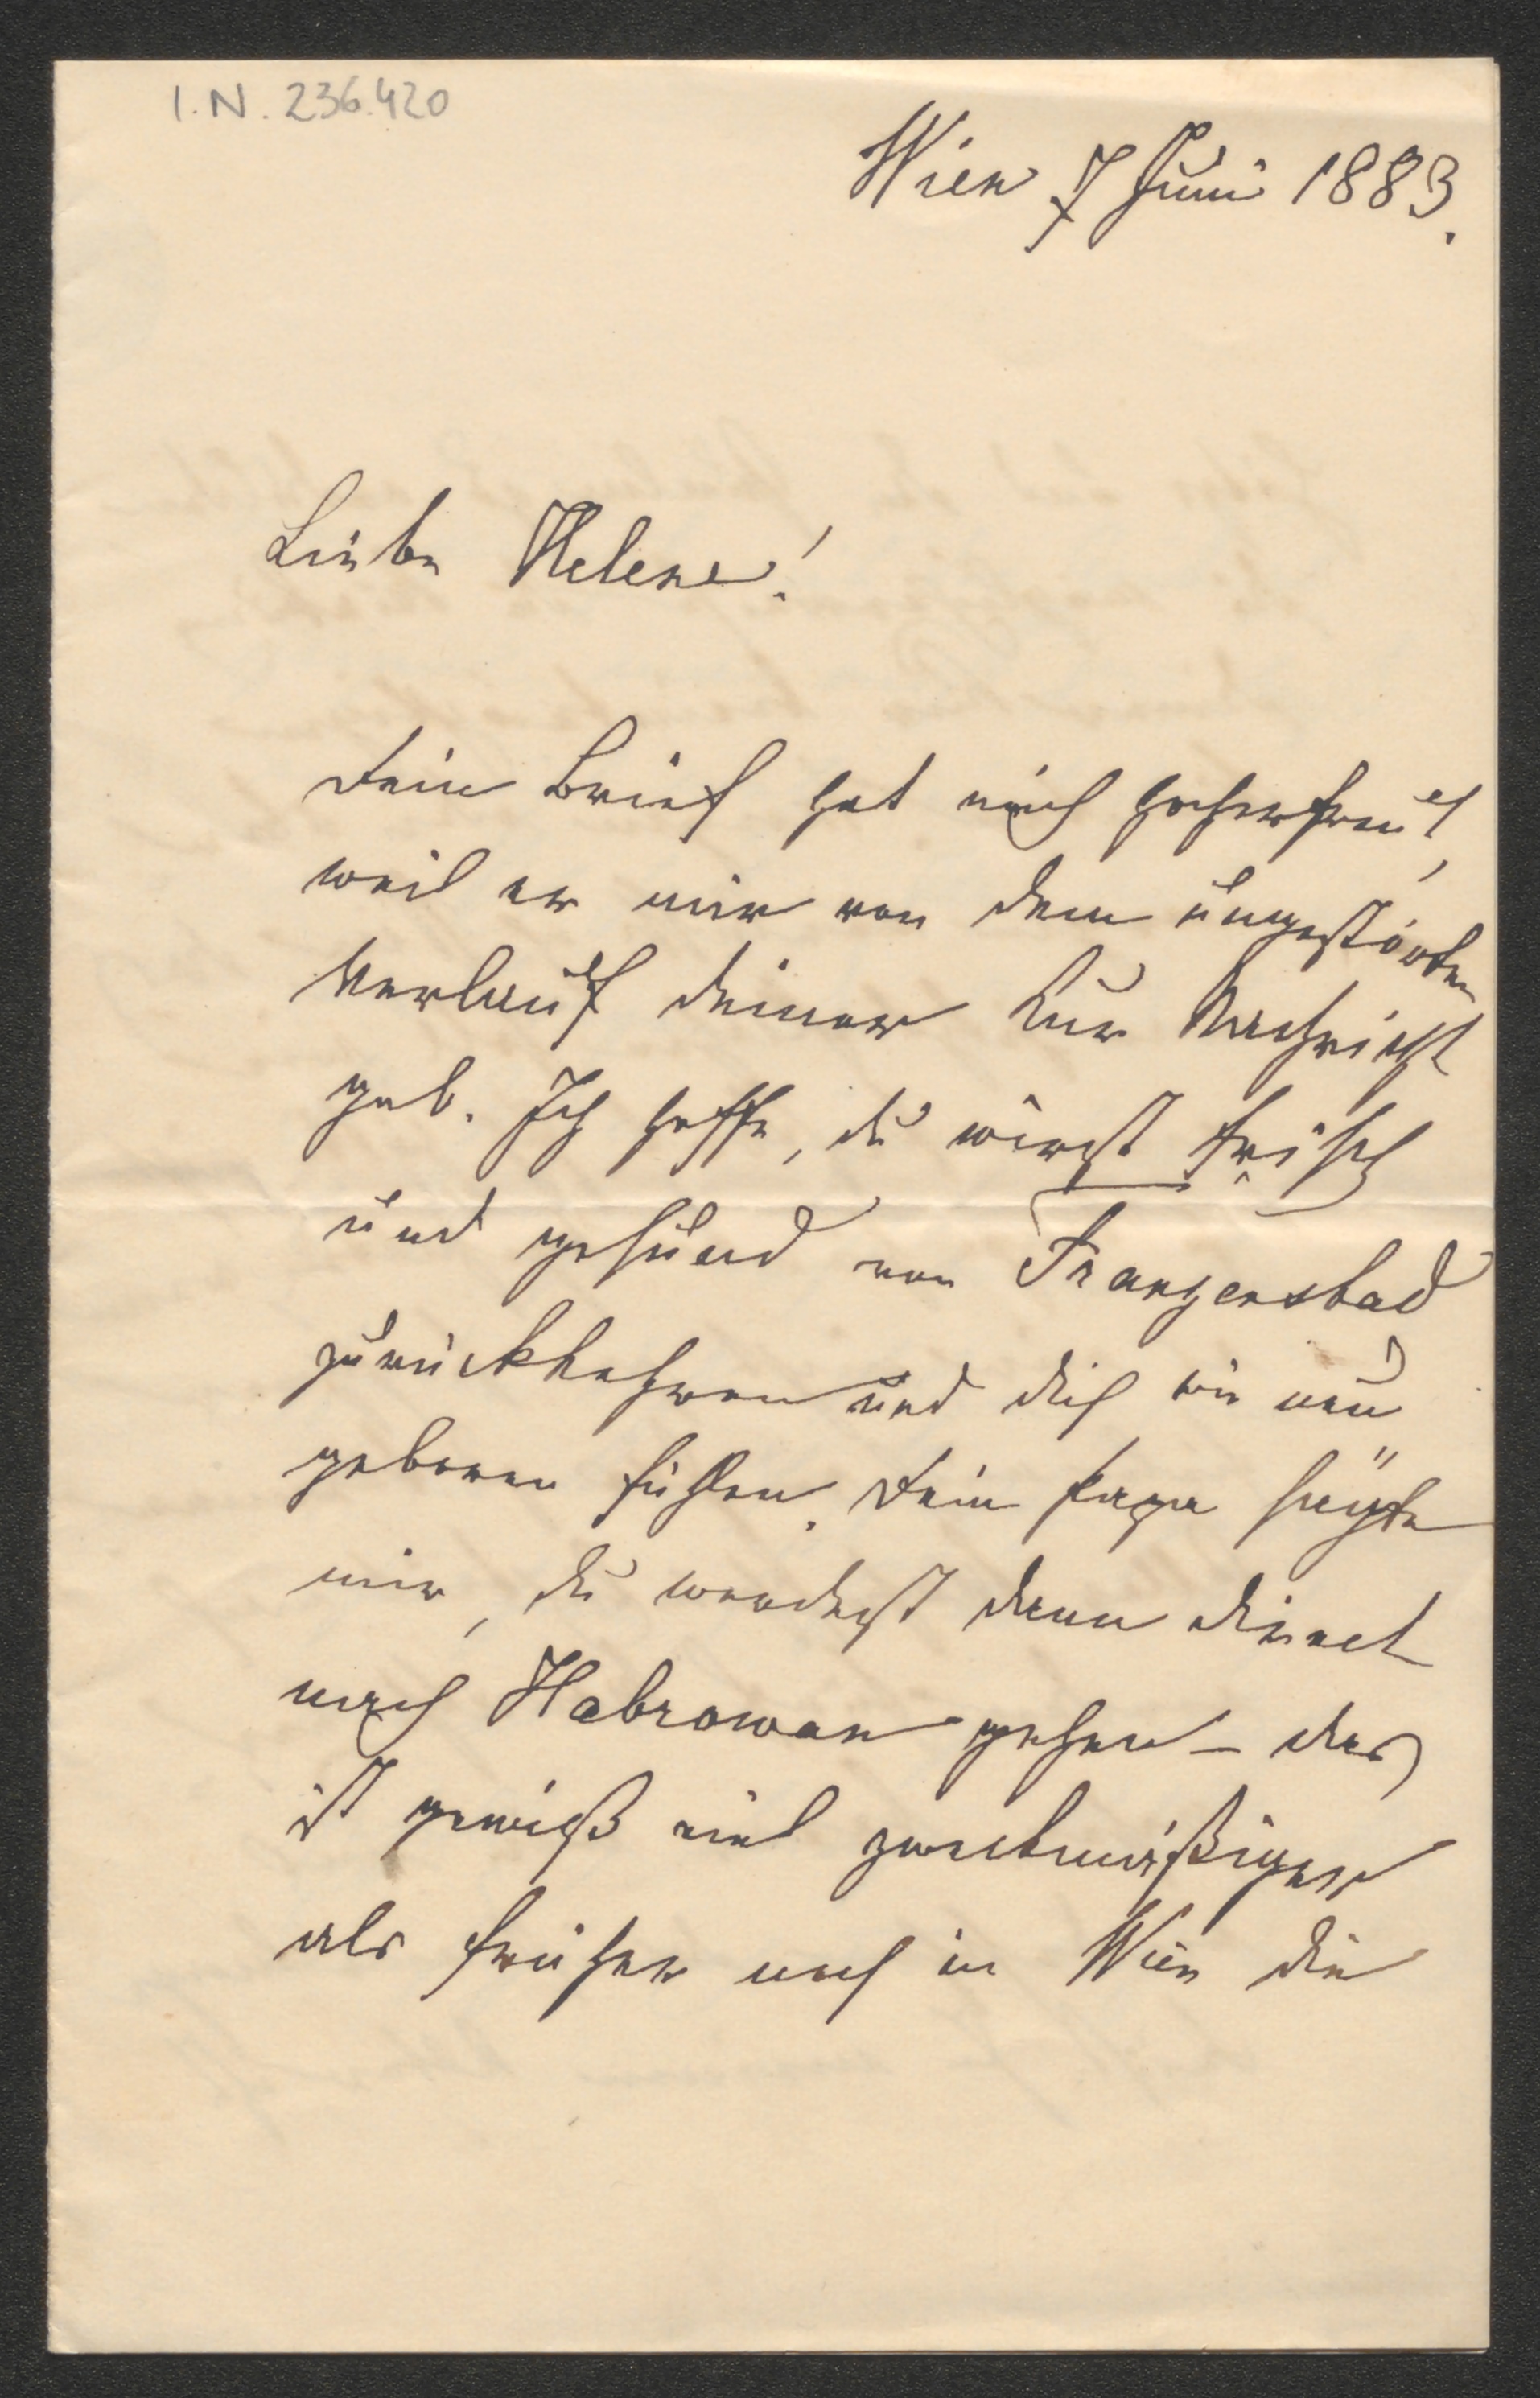 I.N. 236.420
Wien 7 Juni 1883.
Liebe Helene!
Dein Brief hat mich hocherfreut,
weil er mir von dem ungestörten
Verlauf deiner Kur Nachricht
gab. Ich hoffe, du wirst frisch
und gesund von Franzensbad
zurückkehren und dich wie neu
geboren fühlen. Dein Papa sagte
mir, du werdest dann direct
nach Habrowan gehen – das
ist gewiß viel zweckmäßiger
als früher noch in Wien die